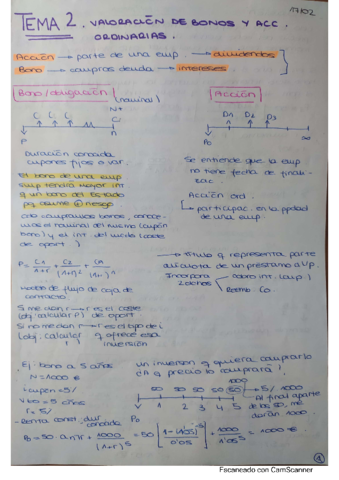 17/02
TEMA 2. VALORACIÓN DE BONOS Y ACC.
ORDINARIAS.
Acción → parte de una emp. → dividendos
Bono → compras deuda → intereses
Bono / obligación
(nominal)
N+
C C C Cn
P n
Duración conocida
cupones fijos o var.
El bono de una emp
emp tendrá mayor int
q un bono del Estado
pq asume riesgo
mos el nominal del mismo (cupón
bono) y el int del mcdo (coste
de oport)
P = C1/1+r + C2/(1+r)² + Cn/(1+r)ⁿ
Modelo de flujo de caja de
contacto
Si me dan r → r es el coste
(obj: calcular P) de oport
Si no me dan r → r es el tipo de i
(obj. calcular q ofrece esa
inversión
Acción
D1 D2 D3
P ∞
Se entiende que la emp
no tiene fecha de finali-
zac.
Acción ord.
↳ participac. en la ppdad
de una emp.
→ título q representa parte
alícuota de un préstamo a l/p.
Incorpora
2 dchos
Cobro int. (cup.)
Reemb. Co.
Ej: bono a 5 años
N = 1000 €
cupón = 5%
Vto = 5 años
r = 5%
Un inversor q quiera comprarlo
¿A q precio lo comprará?
1000
50 50 50 50 50 → 5% 1000
1 2 3 4 5
Al final aparte
de los 50, me
darán 1000.
- Renta const. dur.
conocida
P0
P0 = 50 · an¬r + 1000/(1+r)⁵ = 50 [1-(1'05)⁻⁵/0'05] + 1000/1'05⁵ = 1000 €
1
Escaneado con CamScanner